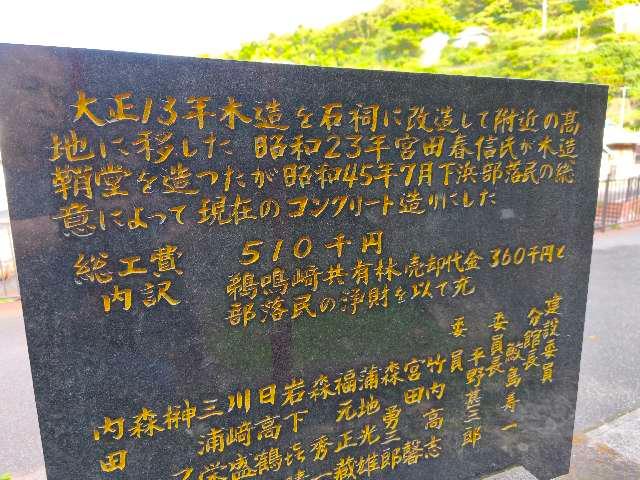 大正13年木造を石祠に改造して附近の高
地に移した 昭和23年宮田春信氏が木造
鞘堂を造つたが昭和45年7月下浜部落民の総
意によって現在のコンクリート造りにした
総工費 510千円
内訳 鵜鳴崎共有林売却代金 360千円と
部落民の浄財を以て充
建設委員
分館長 鮫島寿一
委員長 平野甚三郎
委員 竹内高志
宮田 馨
森 勇三郎
蒲地光雄
福元正蔵
森 秀一
岩下
日高鶴
川崎盛
三浦栄
榊
森
内田